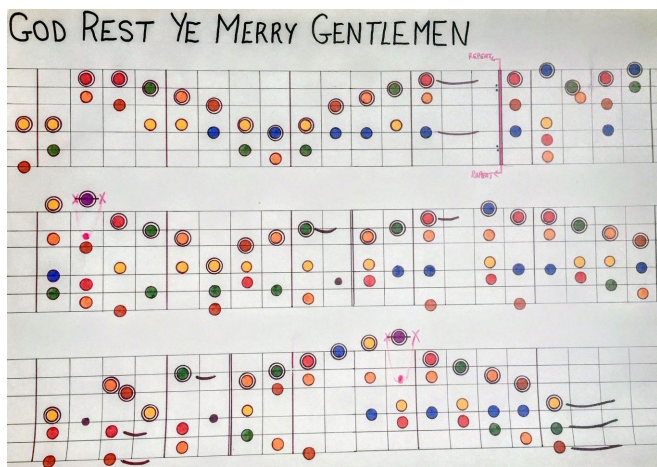 GOD REST YE MERRY GENTLEMEN
REPEAT
REPEAT